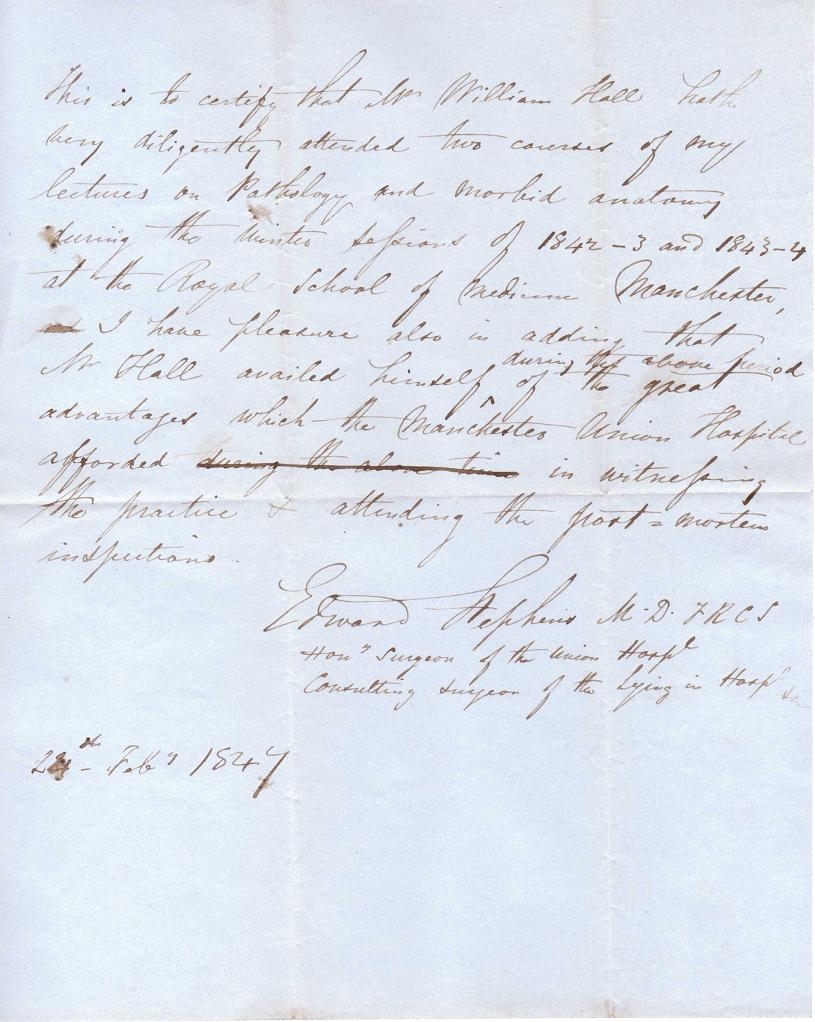 This is to certify that Mr William Hall hath
very diligently attended two courses of my
lectures on Pathology and morbid anatomy
during the winter sessions of 1842-3 and 1843-4
at the Royal School of medicine Manchester,
I have pleasure also in adding that
during the above period
Mr Hall availed himself of the great
advantages which the Manchester Union Hospital
afforded during the above time in witnessing
the practice & attending the post=mortem
inspections.
Edward Stephens M.D. FRCS
Hony Surgeon of the Union Hospl
Consulting surgeon of the Lying in Hospl
24th Feby 1847